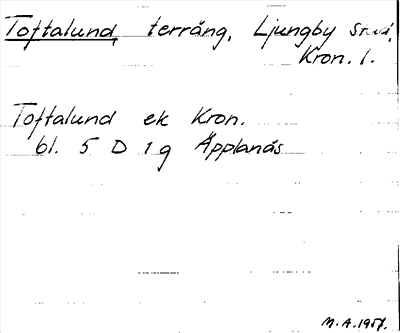 Toftalund, terräng, Ljungby
Kron. l.
Toftalund ek Kron.
bl. 5 D 1 g Äpplanäs
M.A. 1957.